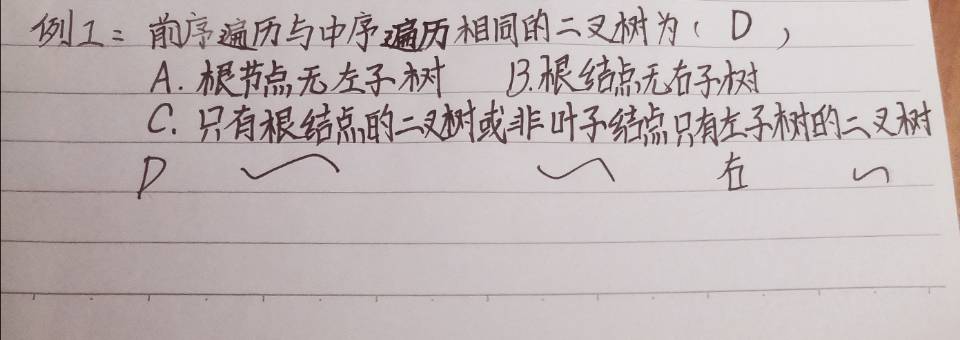 例1：前序遍历与中序遍历相同的二叉树为（ D ）
A. 根节点无左子树 B. 根结点无右子树
C. 只有根结点的二叉树或非叶子结点只有左子树的二叉树
D 右